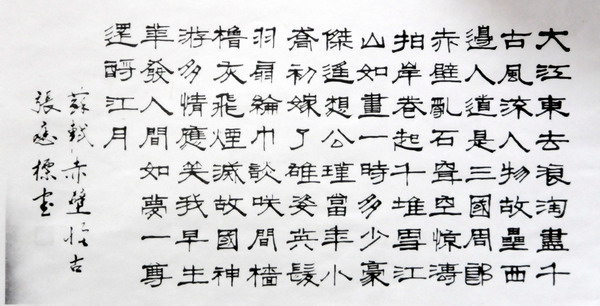 大江東去浪淘盡千
古風流人物故壘西
邊人道是三國周郎
赤壁亂石聳空惊濤
拍岸卷起千堆雪江
山如畫一時多少豪
傑遙想公瑾當年小
喬初嫁了雄姿英髮
羽扇綸巾談咲間檣
櫓灰飛煙滅故國神
游多情應笑我早生
華發人間如夢一尊
還酹江月
蘇軾赤壁懷古
張應標書